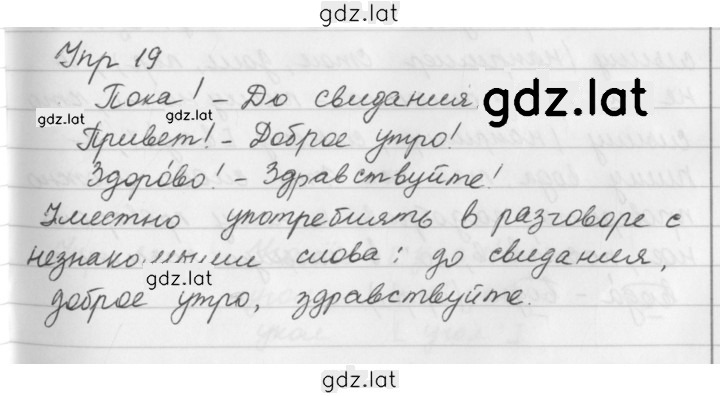 gdz.lat
Упр 19
Пока! - До свидания
gdz.lat
gdz.lat
gdz.lat
Привет! - Доброе утро!
Здорóво! - Здравствуйте!
Уместно употреблять в разговоре с
слова: до свидания,
gdz.lat
доброе утро, здравствуйте.
gdz.lat